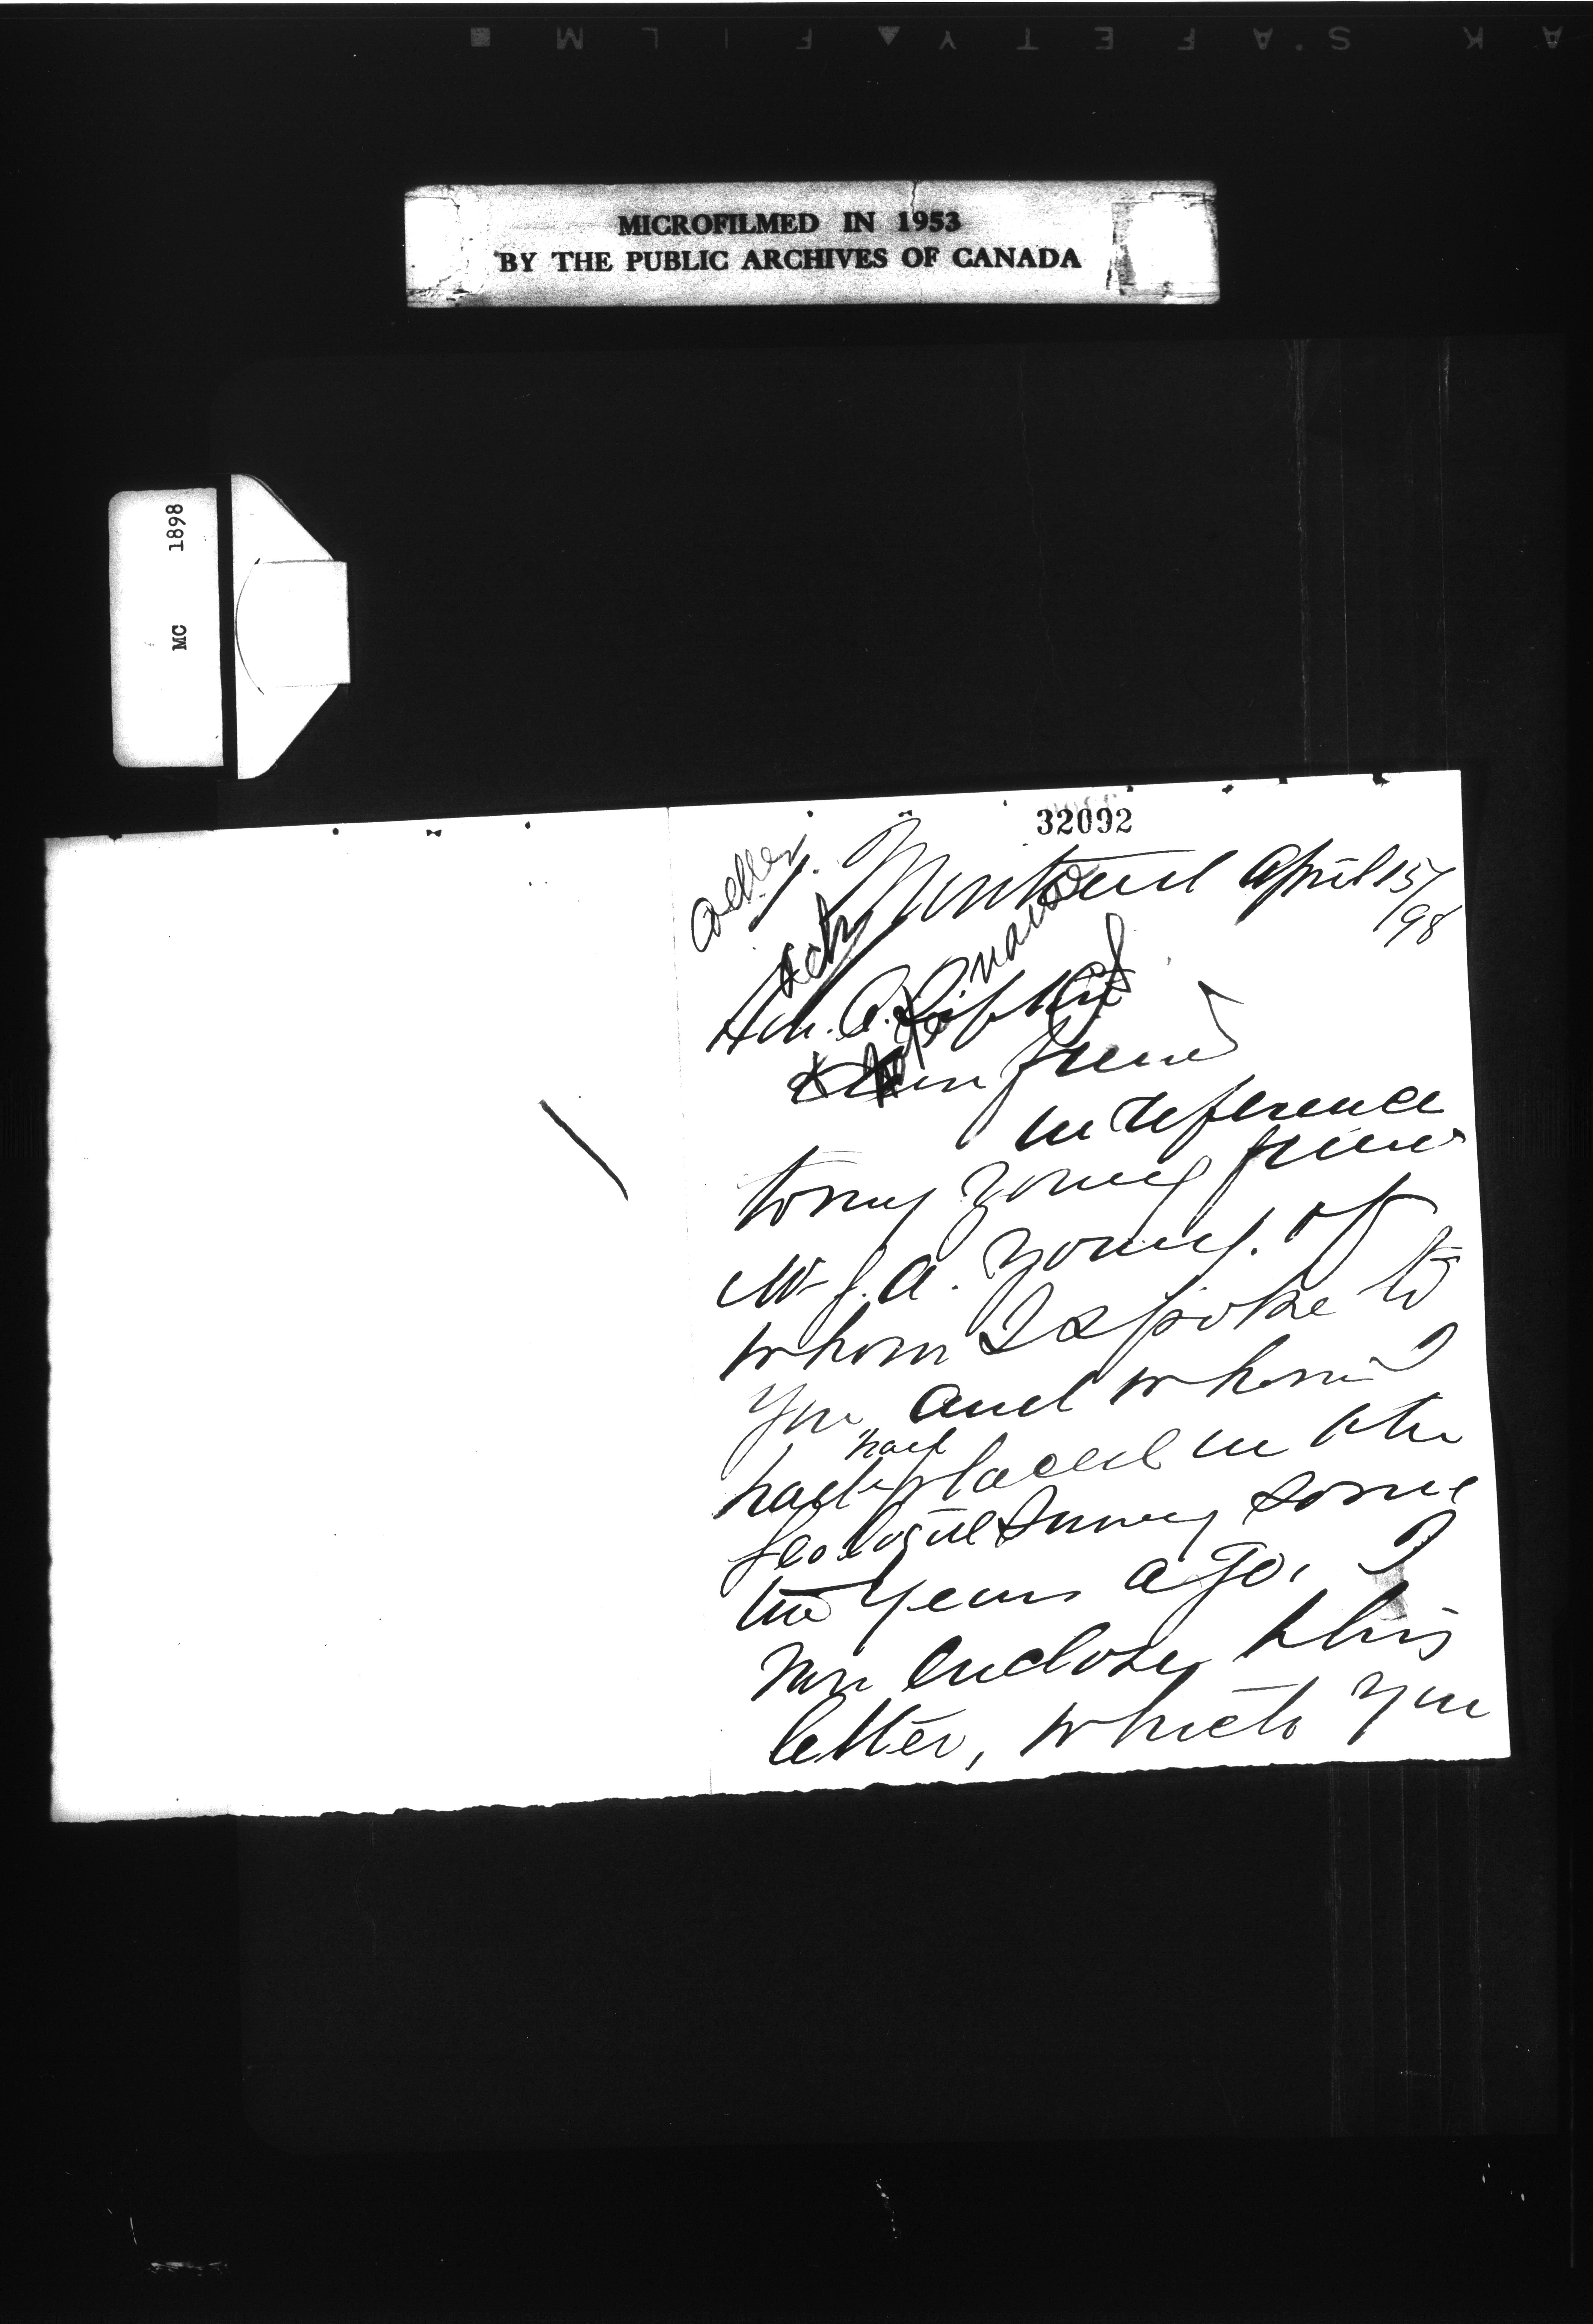 AK SAFETY▲FILM■
MICROFILMED IN 1953
BY THE PUBLIC ARCHIVES OF CANADA
MC 1898
32092
Montreal April 15/98
Hon. C. Sifton
Dear friend
In reference
to my young friend
Mr J. A. Young. of
whom I spoke to
you and whom I
had had placed in the
Geological Survey some
two years ago, I
now enclose this
letter, which you